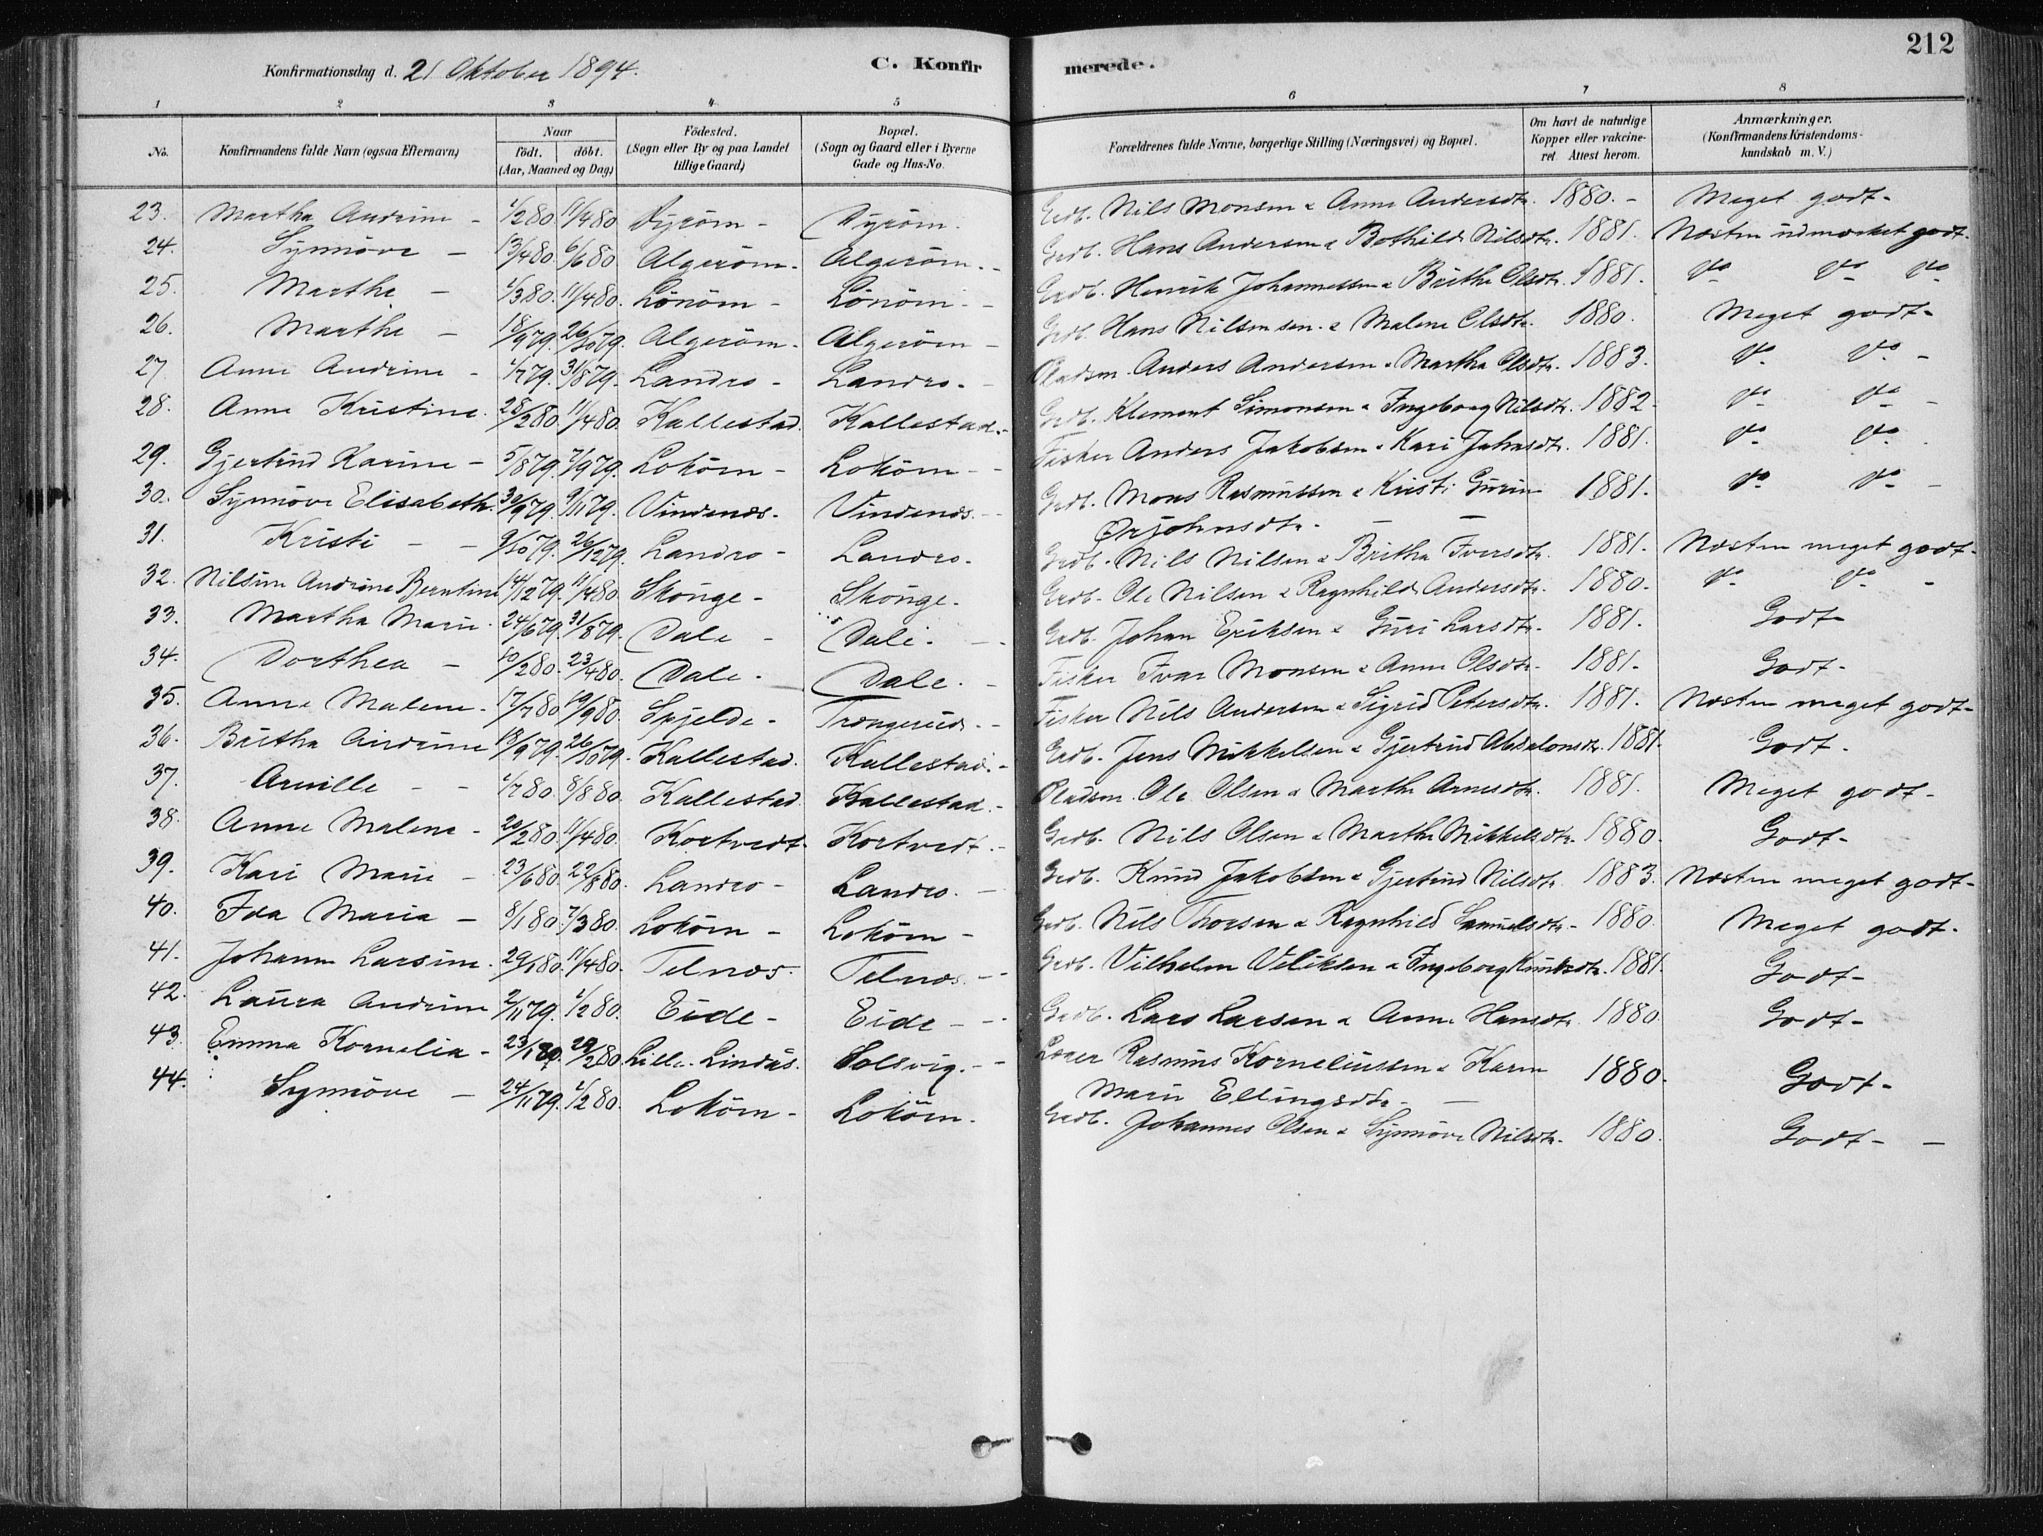 212
Konfirmationsdag d. 21 Oktober 1894.
C. Konfirmerede.
1 2 3 4 5 6 7 8
No.
Konfirmandens fulde Navn (ogsaa Efternavn)
Naar
födt. döbt.
(Aar, Maaned og Dag)
Födested.
(Sogn eller By og paa Landet
tillige Gaard)
Bopæl.
(Sogn og Gaard eller i Byerne
Gade og Hus-No.
Forældrenes fulde Navne, borgerlige Stilling (Næringsvei) og Bopæl.
Om havt de naturlige
Kopper eller vakcine-
ret Attest herom.
Anmærkninger.
(Konfirmandens Kristendoms-
kundskab m. V.)
23. Martha Andrine - 1/2 80. 11/4 80. Dyröen - Dyröen. Grdb. Nils Monsen & Anne Andersdtr. 1880. - Meget godt -
24. Synnöve - 13/4 80. 6/6 80. Algeröen - Algeröen - Grdb. Hans Andersen & Bothilde Nilsdtr. 1881. Næsten udmærket godt -
25. Marthe - 1/3 80. 11/4 80. Lönöen - Lönöen - Grdb. Henrik Johannessen & Brithe Olsdtr. 1881. do do do
26. Marthe - 18/9 79. 26/10 79. Algeröen - Algeröen - Grdb. Hans Nilsen sen. & Malene Olsdtr. 1880. Meget godt -
27. Anne Andrine - 1/7 79. 31/8 79. Landro - Landro - Pladsm. Anders Andersen & Martha Olsdtr. 1883. do do -
28. Anne Kristine. 28/2 80. 11/4 80. Kallestad. Kallestad - Grdb. Klement Simonsen & Ingeborg Nilsdtr. 1882. do do -
29. Gjertrud Karine - 5/8 79. 7/9 79. Loköen - Loköen - Fisker Anders Jakobsen & Kari Johnsdtr. 1881. do do
30. Synnöve Elisabeth. 30/9 79. 9/11 79. Vindenæs - Vindenæs - Grdb. Mons Rasmussen & Kristi Gurine 1881. do do -
Ørjohnsdtr. -
31. Kristi - 9/10 79. 26/12 79. Landro - Landro. Grdb. Nils Nilsen & Britha Iversdtr. 1881. Næsten meget godt -
32. Nilsine Andrine Berntine 14/12 79. 11/4 80. Skönge - Skönge. Grdb. Ole Nilsen & Ragnhilde Andersdtr. 1880. do do -
33. Martha Marie. 24/6 79. 31/8 79. Dale - Dale. Grdb. Johan Eriksen & Guri Larsdtr. 1881. Godt -
34. Dorthea - 10/2 80. 23/4 80. Dale. Dale. Fisker Ivar Monsen & Anne Olsdtr. 1881. Godt -
35. Anne Malene - 17/7 80. 19/9 80. Spjelde - Trængereid - Fisker Nils Andersen & Sigrid Petersdtr. 1881. Næsten meget godt -
36. Britha Andrine 18/9 79. 26/10 79. Kallestad. Kallestad - Grdb. Jens Mikkelsen & Gjertrud Absalonsdtr. 1881. Godt -
37. Arnille - 1/7 80. 8/8 80. Kallestad. Kallestad - Pladsm. Ole Olsen & Marthe Arnesdtr. 1881. Meget godt -
38. Anne Malene - 20/2 80. 11/4 80. Kortvedt - Kortvedt - Grdb. Nils Olsen & Marthe Mikkelsdtr. 1880. Godt -
39. Kari Marie - 23/6 80. 22/8 80. Landro - Landro. - Grdb. Knud Jakobsen & Gjertrud Nilsdtr. 1883. Næsten meget godt -
40. Ida Maria - 8/1 80. 7/3 80. Loköen - Loköen - Grdb. Nils Thorsen & Ragnhild Samuelsdtr. - 1880. Meget godt -
41. Johanne Larsine. 29/1 80. 11/4 80. Telnæs. Telnæs - Grdb. Vilhelm Veliksen & Ingeborg Knudsdtr. 1881. Godt -
42. Laura Andrine 2/11 79. 1/2 80. Eide - Eide - Grdb. Lars Larsen & Anne Hansdtr. 1880. Godt -
43. Emma Kornelia - 23/1 80. 29/2 80. Lille Lindås. Solsvig - Lærer Rasmus Korneliussen & Karen 1880. Godt -
Marie Ellingsdtr. -
44. Synnöve - 24/11 79. 1/2 80. Loköen - Loköen. Grdb. Johannes Olsen & Synnöve Nilsdtr. 1880. Godt -